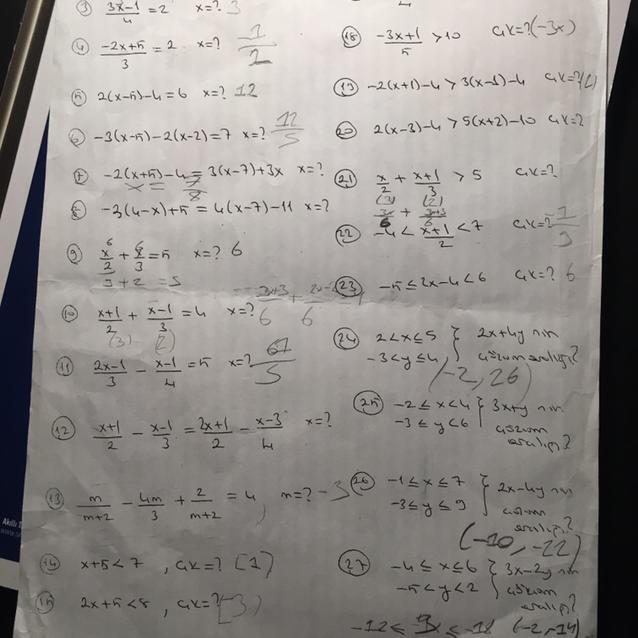 3) (3x-1)/4 = 2 x=? 3
4) (-2x+5)/3 = 2 x=? 1/2
5) 2(x-5)-4=6 x=? 12
6) -3(x-5)-2(x-2)=7 x=? 12/5
7) -2(x+5)-4=3(x-7)+3x x=?
8) -3(4-x)+5=4(x-7)-11 x=?
9) x/2 + 6/3 = 5 x=? 6
3+2=5
10) (x+1)/2 + (x-1)/3 = 4 x=?
(3) (2)
11) (2x-1)/3 - (x-1)/4 = 5 x=? 61/5
12) (x+1)/2 - (x-1)/3 = (2x+1)/2 - (x-3)/4 x=?
13) m/(m+2) - 4m/3 + 2/(m+2) = 4 m=? -3
14) x+5<7 , çk=? [1)
15) 2x+5<8 , çk=? [3)
18) (-3x+1)/5 >10 çk=? (-3x)
19) -2(x+1)-4>3(x-1)-4 çk=?
20) 2(x-3)-4>5(x+2)-10 çk=?
21) x/2 + (x+1)/3 > 5 çk=?
(3) (2)
22) -4< (x+1)/2 <7 çk=?
23) -5≤2x-4<6 çk=? 6
24) 2<x≤5 } 2x+4y nin
-3<y≤4, } çözüm aralığı?
(-2,26)
25) -2≤x<4 } 3x+y nin
-3≤y<6 } çözüm
aralığı?
26) -1≤x≤7 } 2x-4y nin
-3≤y≤9 } çözüm
aralığı?
(-10,-22)
27) -4≤x≤6 } 3x-2y nin
-5<y<2 } çözüm
aralığı?
-12≤3x≤-18 (-2,-14)